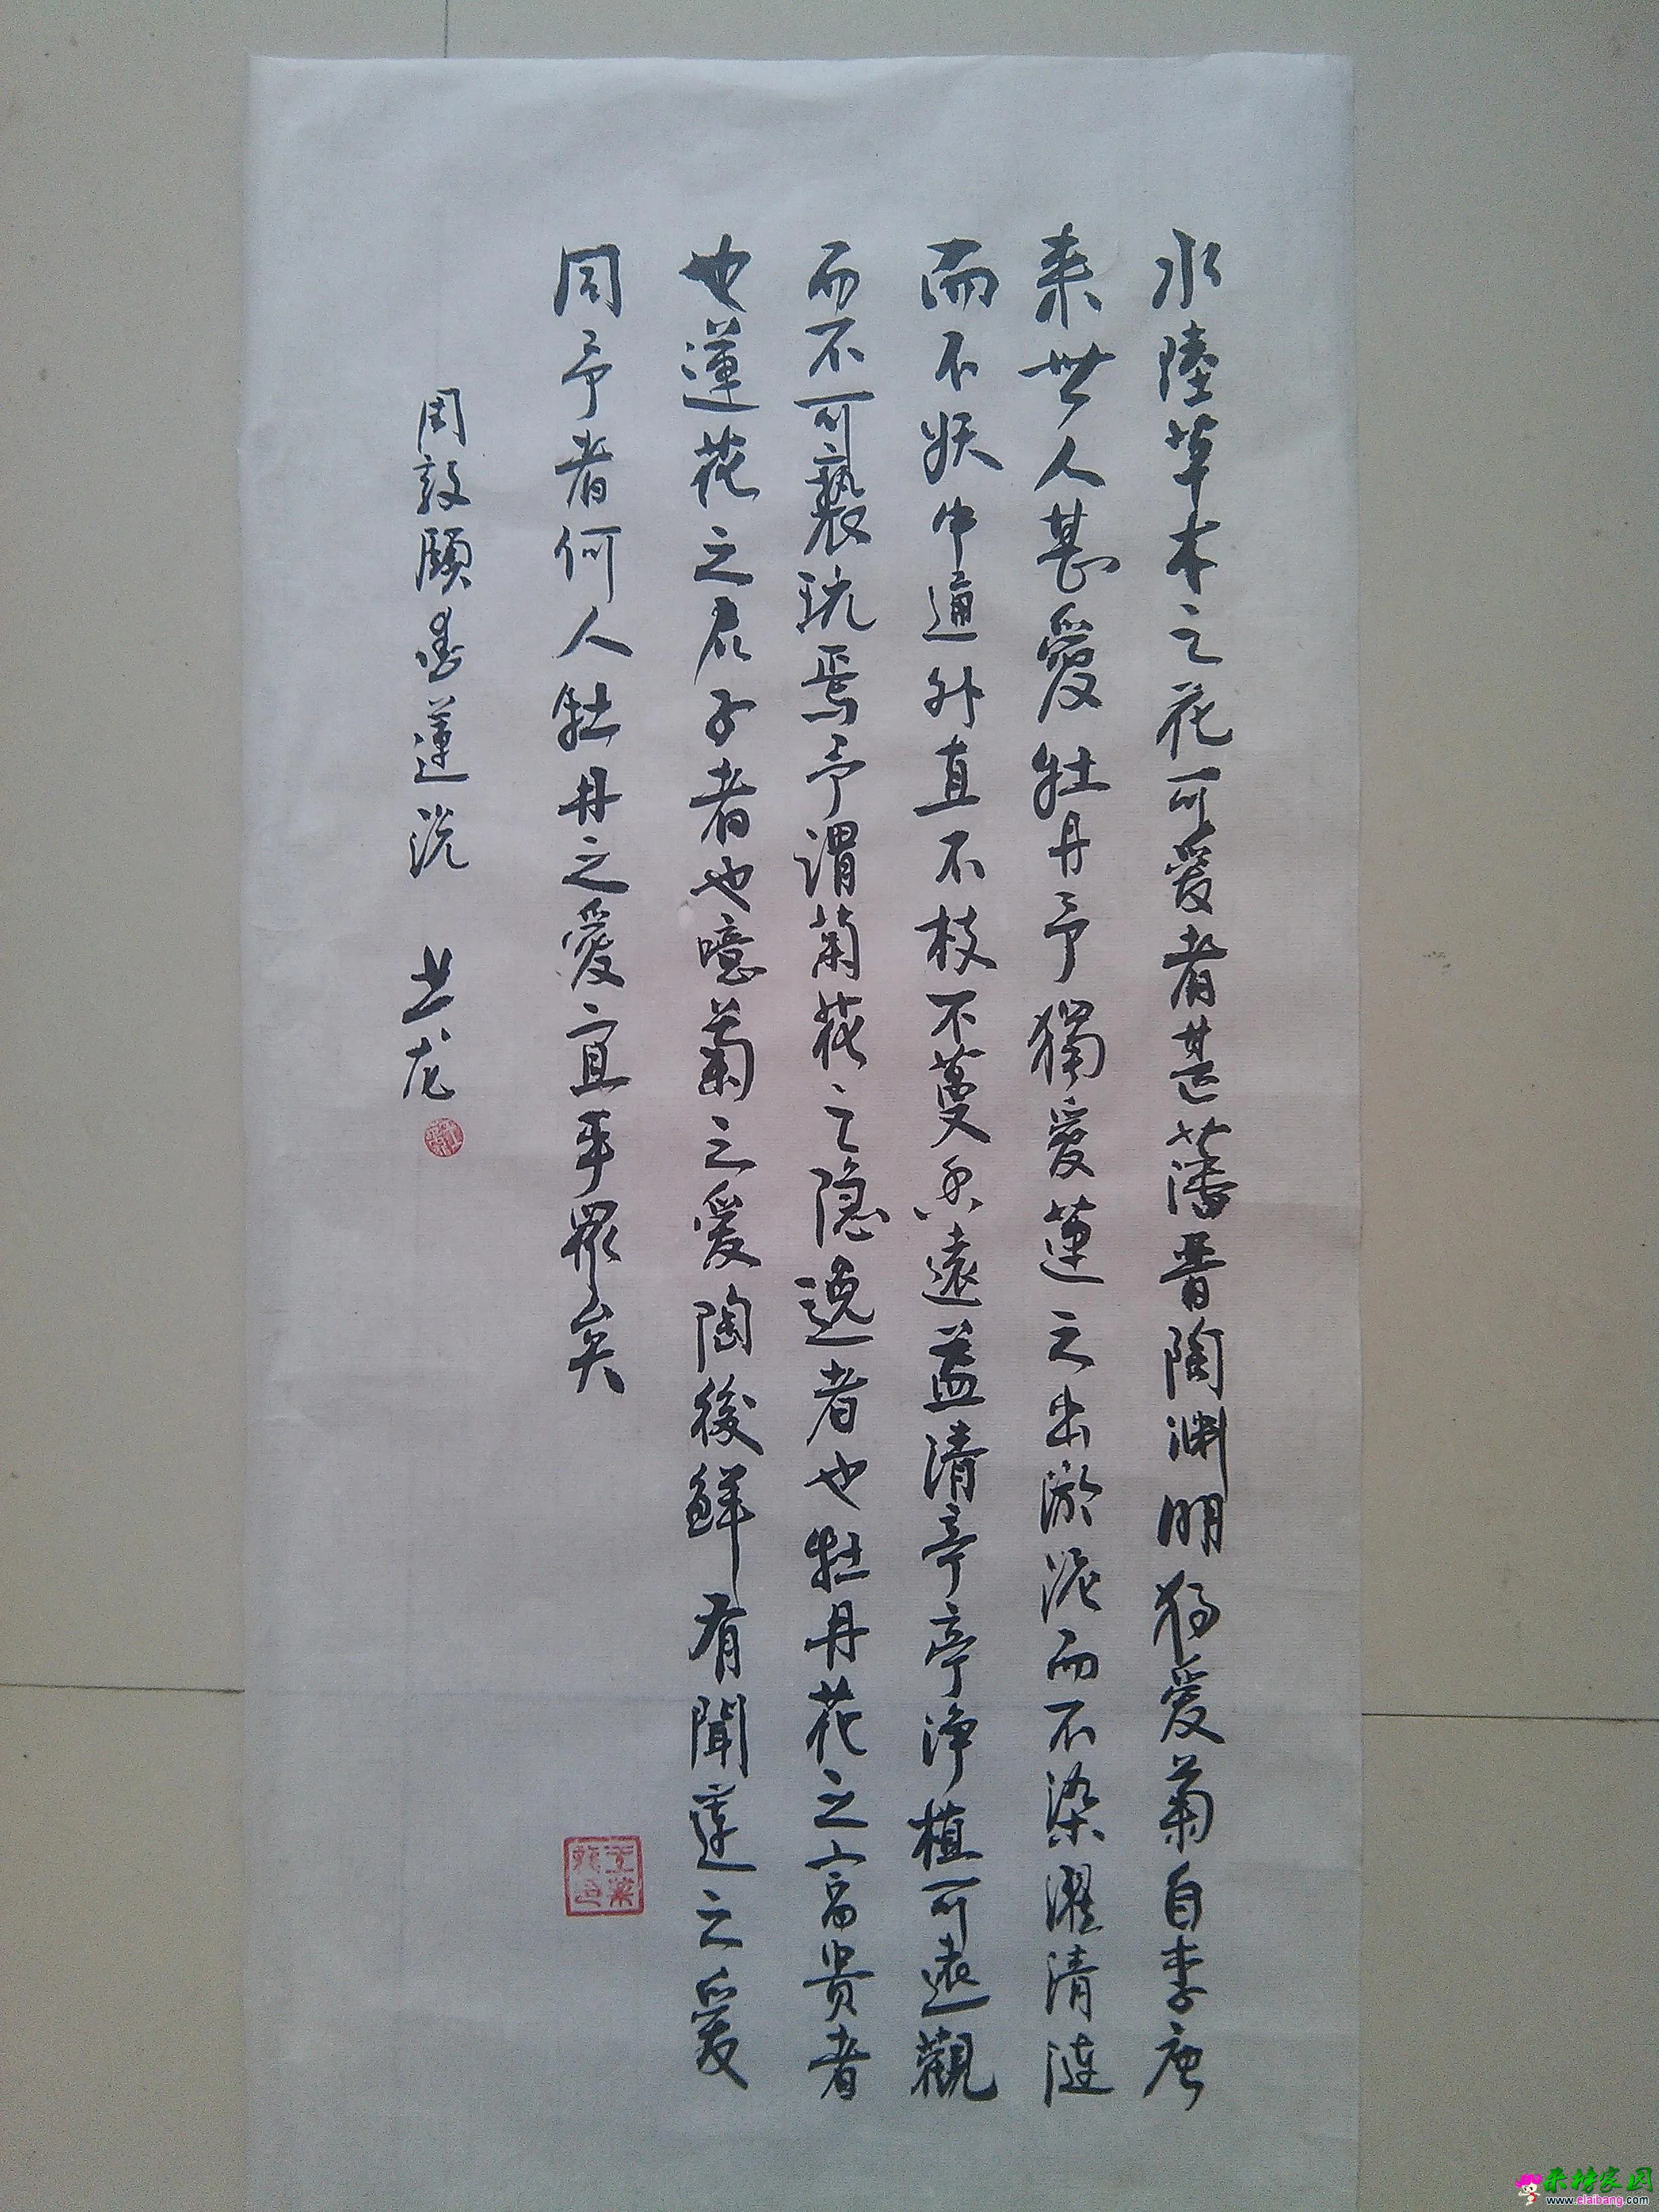 水陸草木之花可爱者甚藩晋陶渊明独爱菊自李唐
来世人甚愛牡丹予獨愛蓮之出淤泥而不染濯清涟
而不妖中通外直不枝不蔓香遠益清亭亭净植可遠觀
而不可褻玩焉予謂菊花之隐逸者也牡丹花之富贵者
也蓮花之君子者也噫菊之爱陶後鮮有聞蓮之爱
同予者何人牡丹之愛宜乎眾矣
周敦頤愛蓮说 业龙
来榜家园
www.elaibang.com